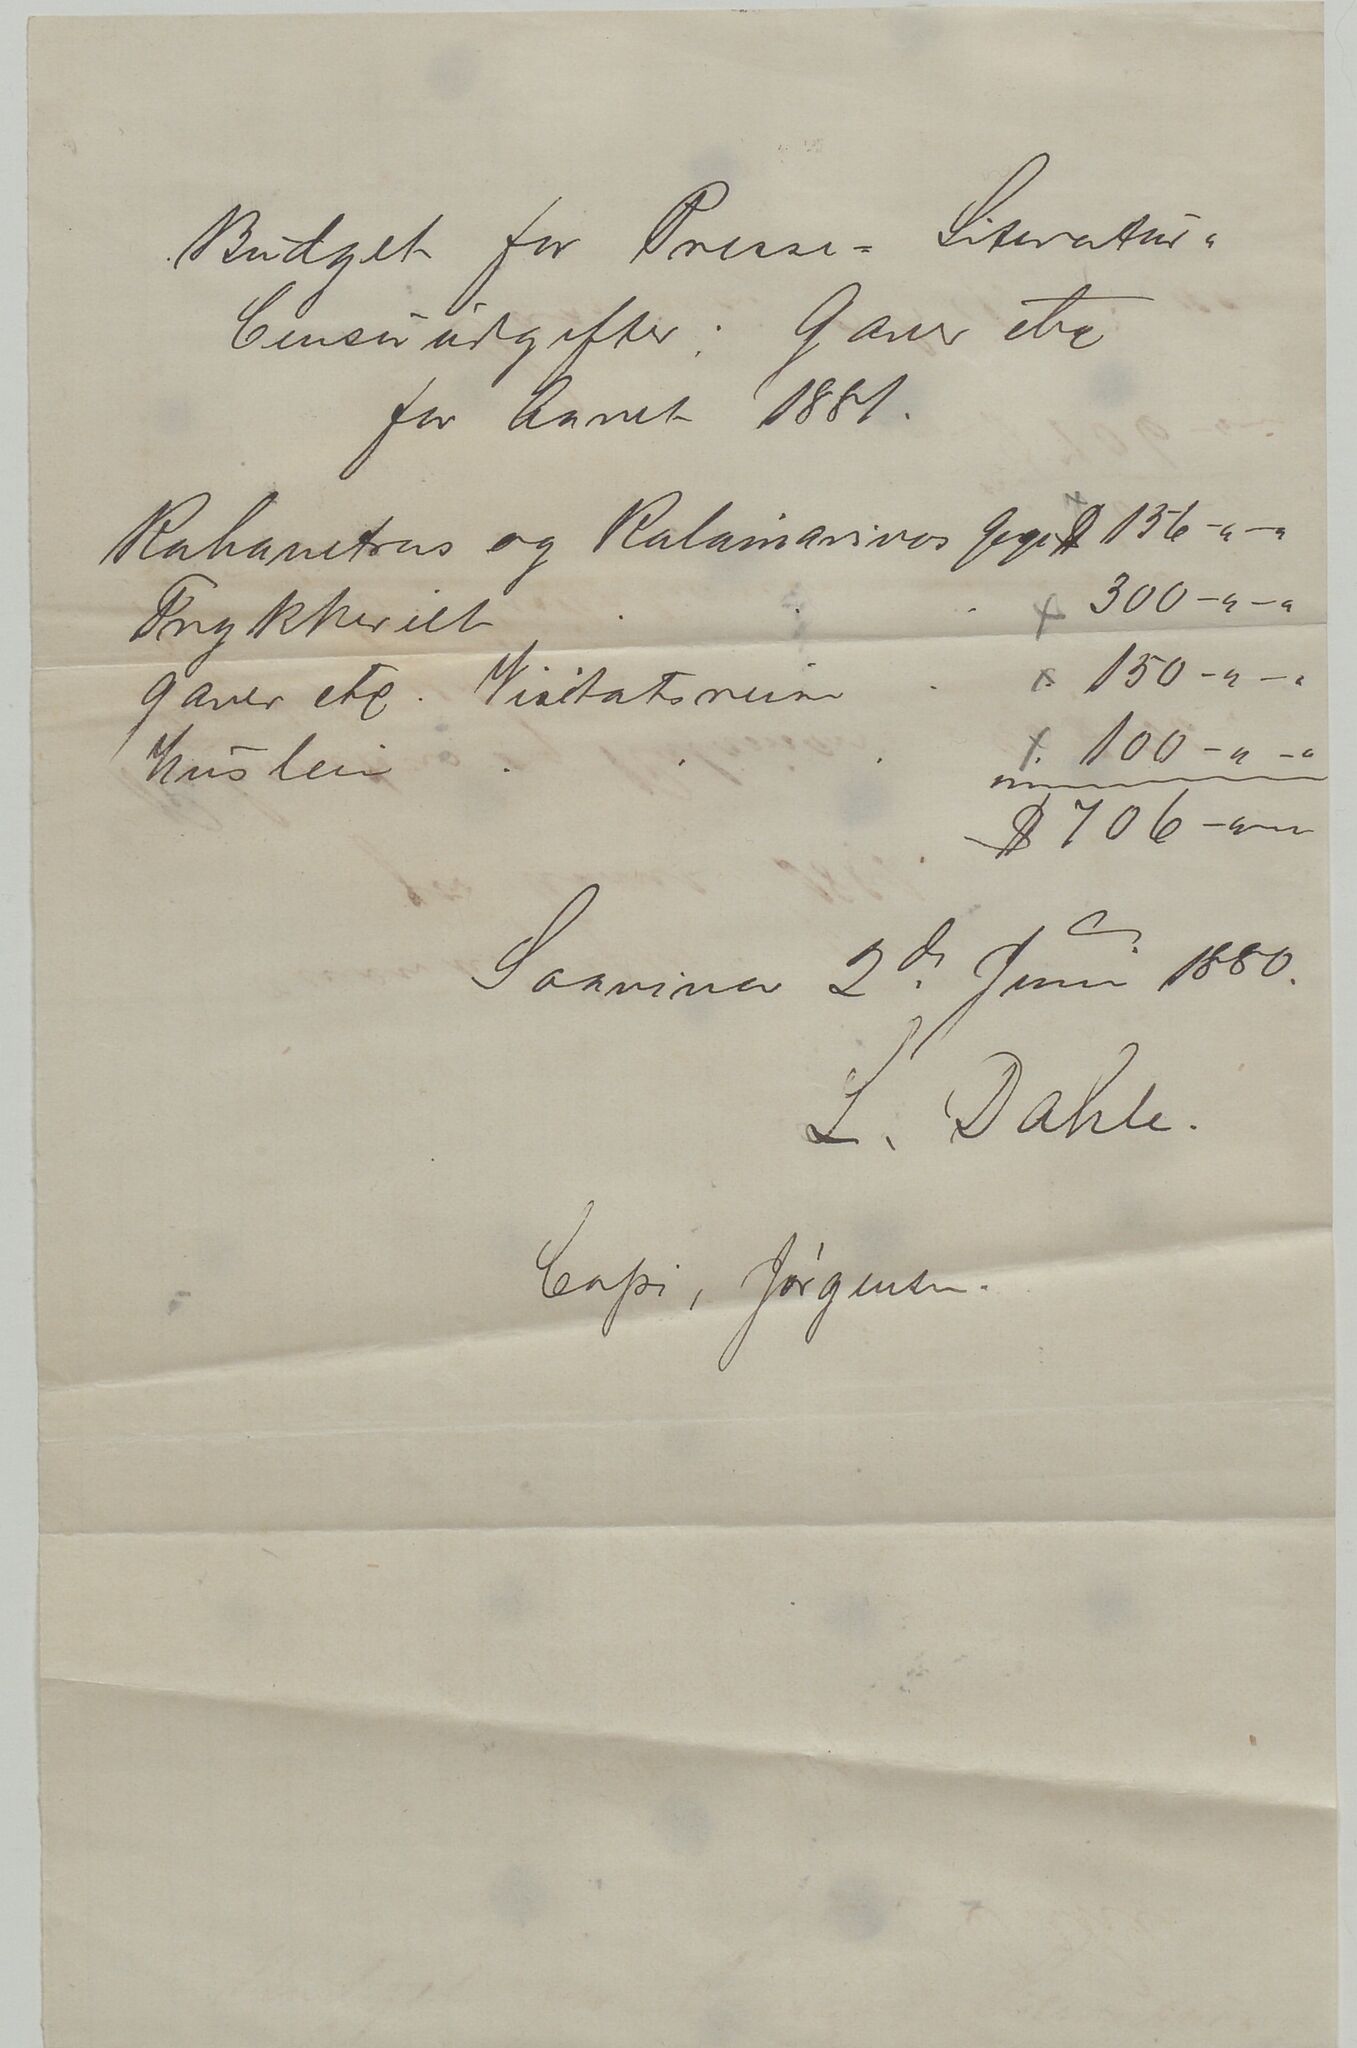 Budget for Presse- Literatur-
Censurudgifter. Gaver etc
for Aaret 1881.
Rahanetras og Ralaimarivos Gage $ 156 - " - "
Trykkeriet . . . x 300 - " - "
Gaver etc. Visitatsreise . x 150 - " - "
Husleie . . . x 100 - " - "
$ 706 - " - "
Soavina 2d. Juni 1880.
L. Dahle.
Copi, Jörgensen.